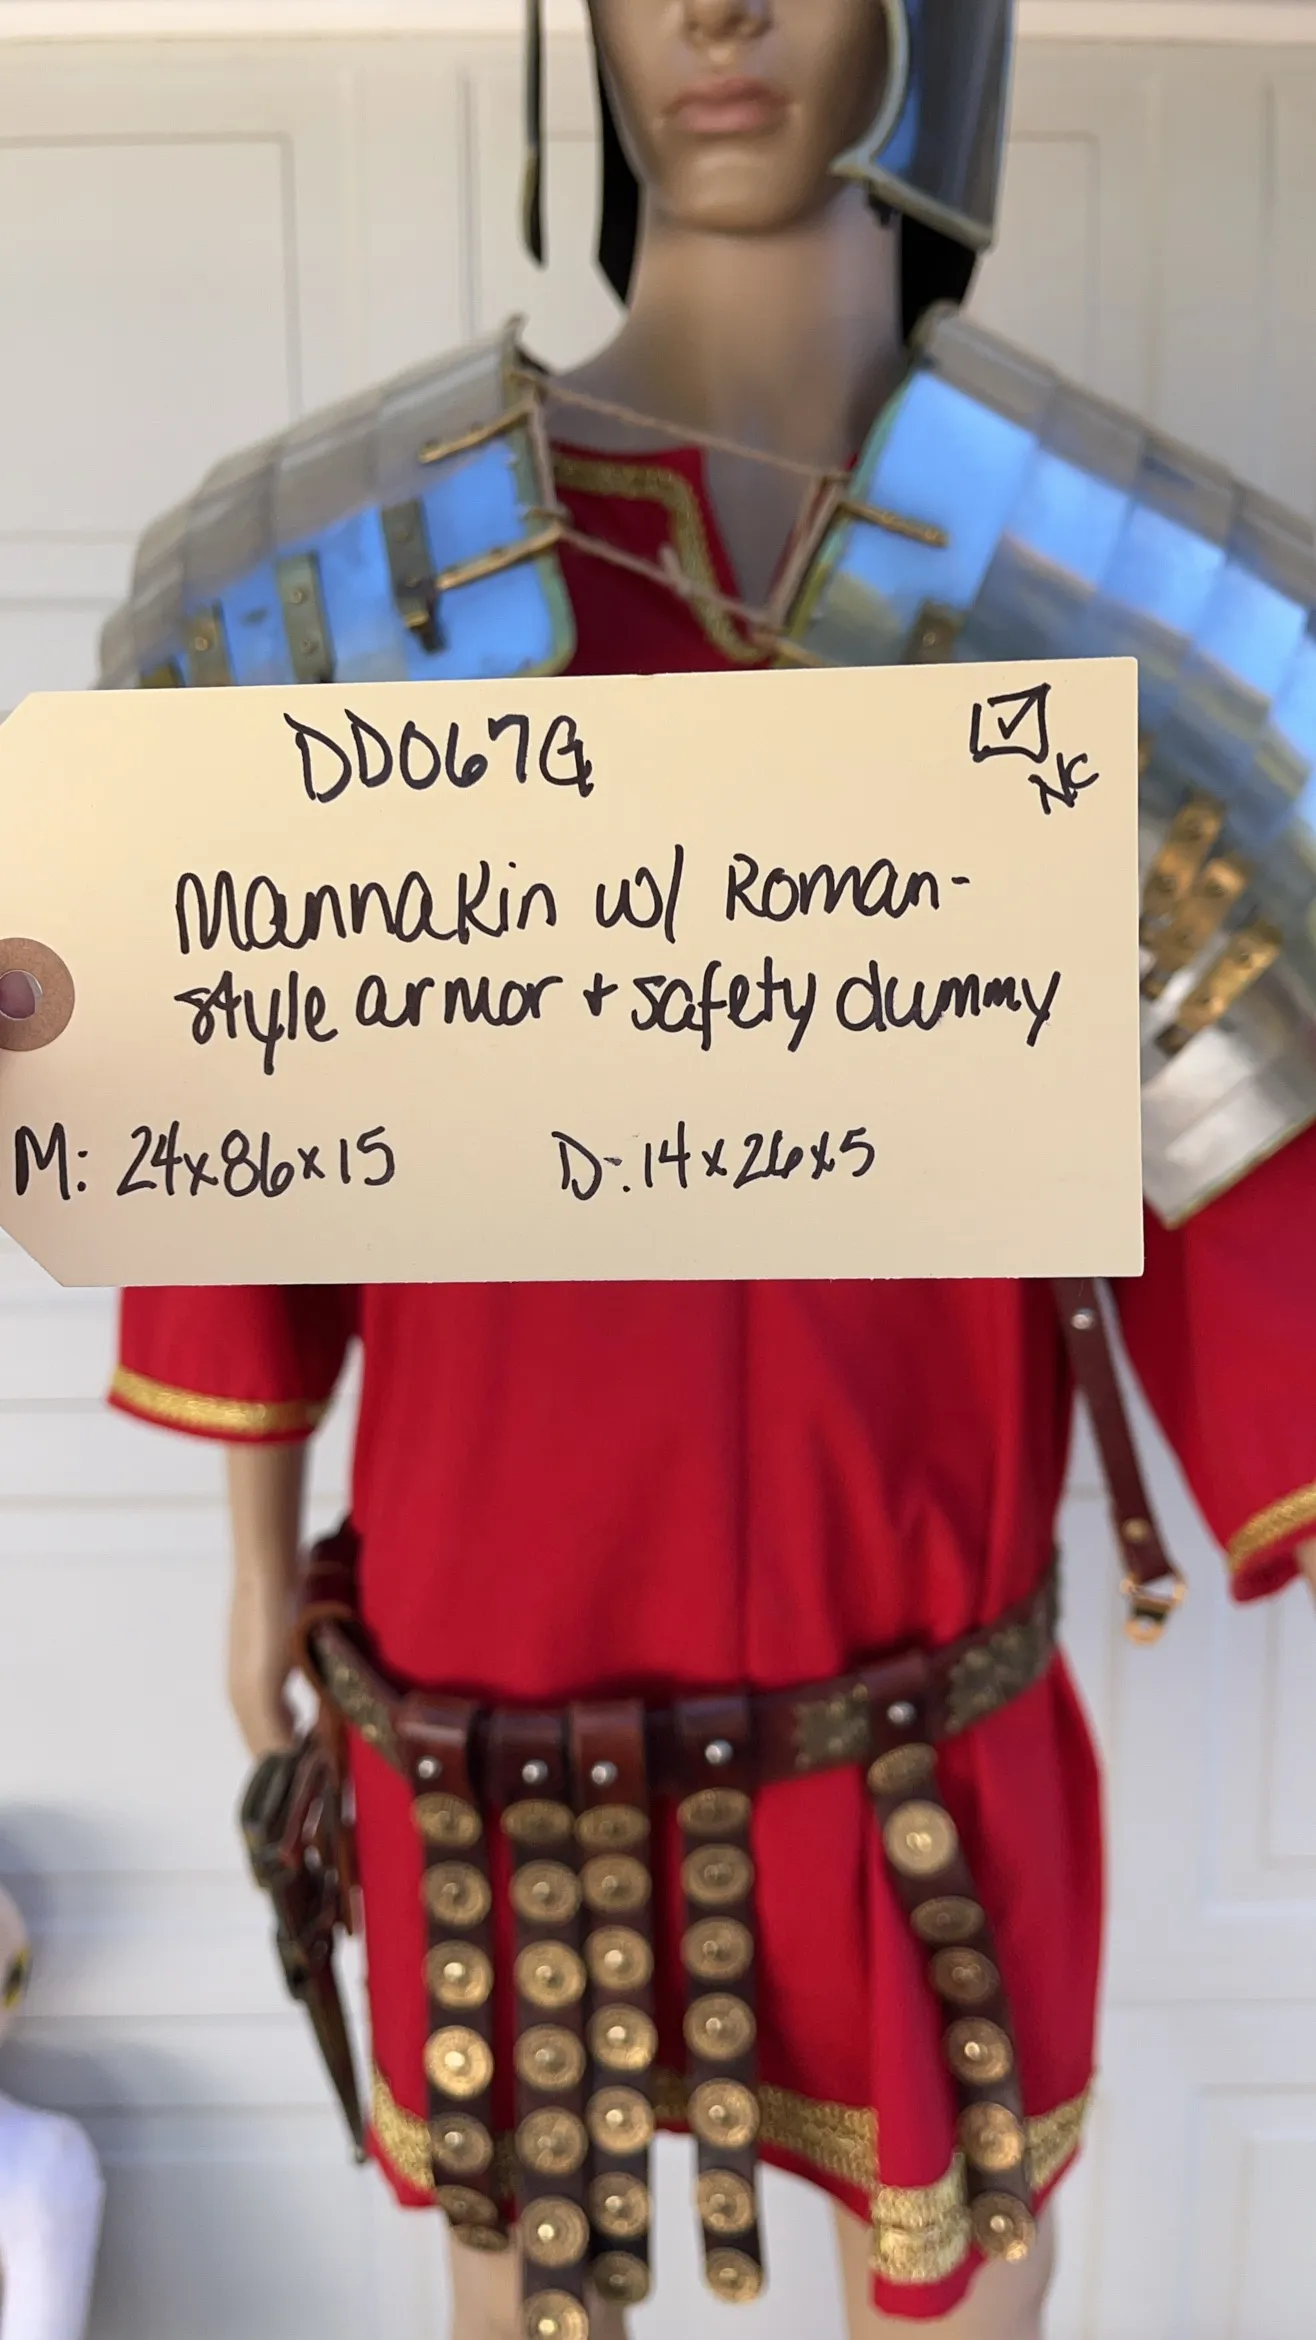 DD067G
☑
NC
Mannakin w/ Roman-
style armor + safety dummy
M: 24x86x15 D: 14x26x5